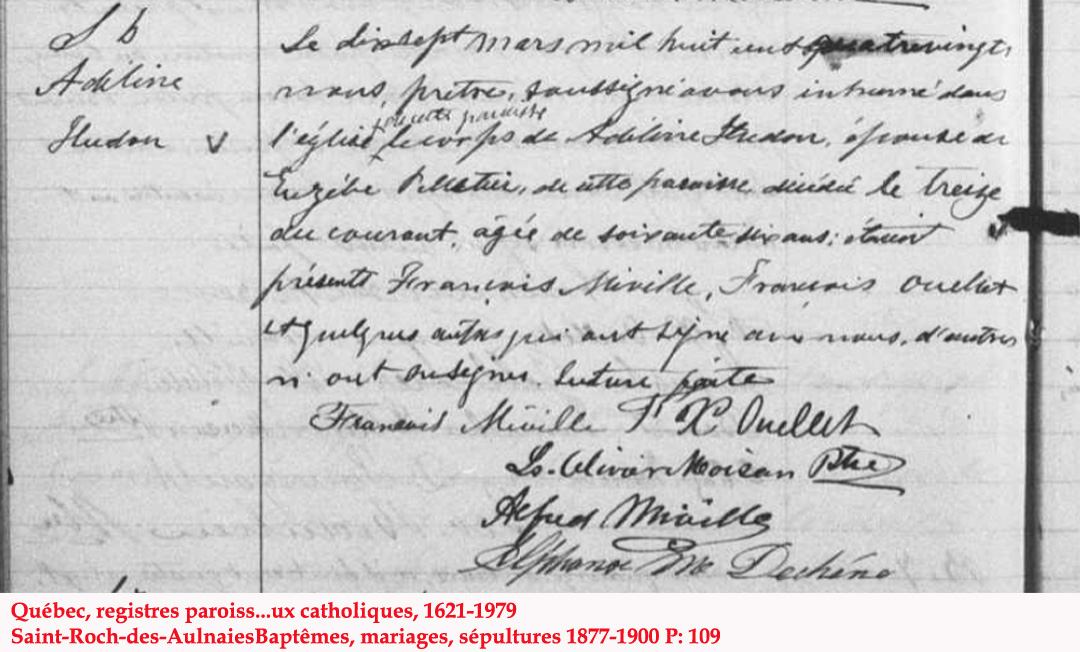 S 6
Adéline
Hudon
Le dix sept mars mil huit cent quatrevingt
nous, prêtre, soussigné avons inhumé dans
de cette paroisse
l'église le corps de Adéline Hudon, épouse de
Euzèbe Pelletier, de cette paroisse décédée le treize
du courant, âgée de soixante dix ans; étaient
présents François Miville, François Ouellet
et quelques autres qui ont signé avec nous, d'autres
n'ont su signer. Lecture faite
François Miville F X Ouellet
Ls. Olivier Moisan Ptre
Alfred Miville
Alphonse Dechène
Québec, registres paroiss...ux catholiques, 1621-1979
Saint-Roch-des-AulnaiesBaptêmes, mariages, sépultures 1877-1900 P: 109